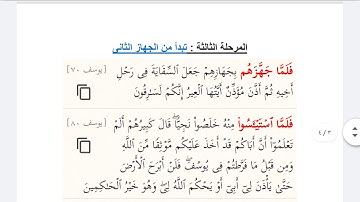 المرحلة الثالثة : تبدأ من الجهاز الثاني
فَلَمَّا جَهَّزَهُم بِجَهَازِهِمْ جَعَلَ ٱلسِّقَايَةَ فِى رَحْلِ [يوسف ٧٠]
أَخِيهِ ثُمَّ أَذَّنَ مُؤَذِّنٌ أَيَّتُهَا ٱلْعِيرُ إِنَّكُمْ لَسَٰرِقُونَ
فَلَمَّا ٱسْتَيْـَٔسُوا۟ مِنْهُ خَلَصُوا۟ نَجِيًّا ۖ قَالَ كَبِيرُهُمْ أَلَمْ [يوسف ٨٠]
تَعْلَمُوٓا۟ أَنَّ أَبَاكُمْ قَدْ أَخَذَ عَلَيْكُم مَّوْثِقًا مِّنَ ٱللَّهِ
وَمِن قَبْلُ مَا فَرَّطتُمْ فِى يُوسُفَ ۖ فَلَنْ أَبْرَحَ ٱلْأَرْضَ
حَتَّىٰ يَأْذَنَ لِىٓ أَبِىٓ أَوْ يَحْكُمَ ٱللَّهُ لِى ۖ وَهُوَ خَيْرُ ٱلْحَٰكِمِينَ
٤/٣